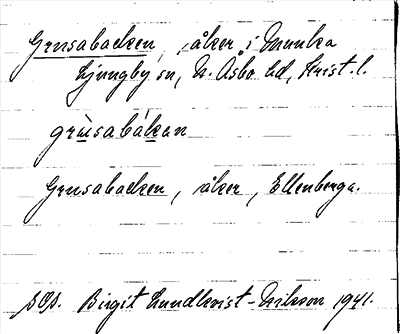 Grusabacken, åker i Munka
Ljungby sn, N. Åsbo hd, Krist. l.
grùsabákan
Grusabacken, åker, Ellenberga.
Birgit Lundkvist-Nilsson 1941.